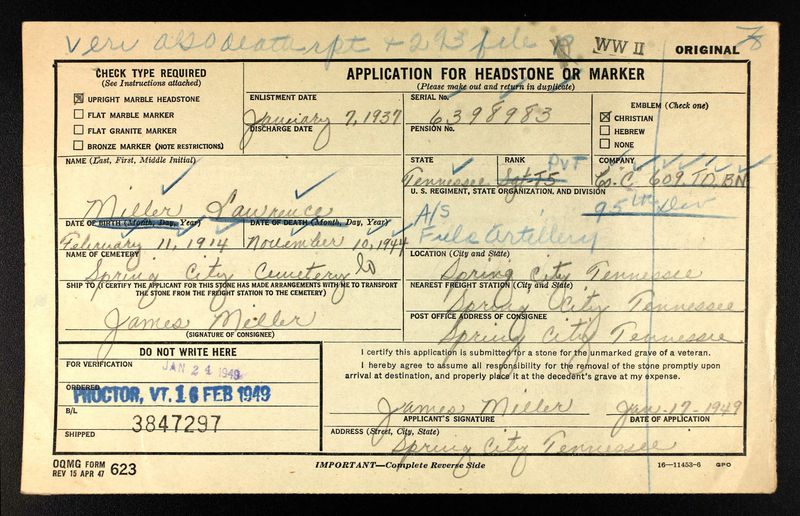 Veri also death rpt + 293 file
WW II
ORIGINAL
CHECK TYPE REQUIRED
(See Instructions attached)
UPRIGHT MARBLE HEADSTONE
FLAT MARBLE MARKER
FLAT GRANITE MARKER
BRONZE MARKER (NOTE RESTRICTIONS)
APPLICATION FOR HEADSTONE OR MARKER
(Please make out and return in duplicate)
ENLISTMENT DATE
January 7, 1937
DISCHARGE DATE
SERIAL No.
6398983
PENSION No.
EMBLEM (Check one)
CHRISTIAN
HEBREW
NONE
NAME (Last, First, Middle Initial)
Miller Lawrence
STATE
Tennessee
RANK
Pvt
Sgt-T5
COMPANY
Co. C, 609 TD. BN
U. S. REGIMENT, STATE ORGANIZATION, AND DIVISION
95th Div
A/S
Field Artillery
DATE OF BIRTH (Month, Day, Year)
February 11, 1914
DATE OF DEATH (Month, Day, Year)
November 10, 1944
NAME OF CEMETERY
Spring City Cemetery
LOCATION (City and State)
Spring City Tennessee
SHIP TO (I CERTIFY THE APPLICANT FOR THIS STONE HAS MADE ARRANGEMENTS WITH ME TO TRANSPORT
THE STONE FROM THE FREIGHT STATION TO THE CEMETERY)
James Miller
(SIGNATURE OF CONSIGNEE)
NEAREST FREIGHT STATION (City and State)
Spring City Tennessee
POST OFFICE ADDRESS OF CONSIGNEE
Spring City, Tennessee
DO NOT WRITE HERE
FOR VERIFICATION
JAN 24 1949
ORDERED
PROCTOR, VT. 16 FEB 1949
B/L
3847297
SHIPPED
I certify this application is submitted for a stone for the unmarked grave of a veteran.
I hereby agree to assume all responsibility for the removal of the stone promptly upon
arrival at destination, and properly place it at the decedent's grave at my expense.
James Miller
Jan-17-1949
APPLICANT'S SIGNATURE
DATE OF APPLICATION
ADDRESS (Street, City, State)
Spring City Tennessee
OQMG FORM
REV 15 APR 47
623
IMPORTANT—Complete Reverse Side
16—11453-6 GPO